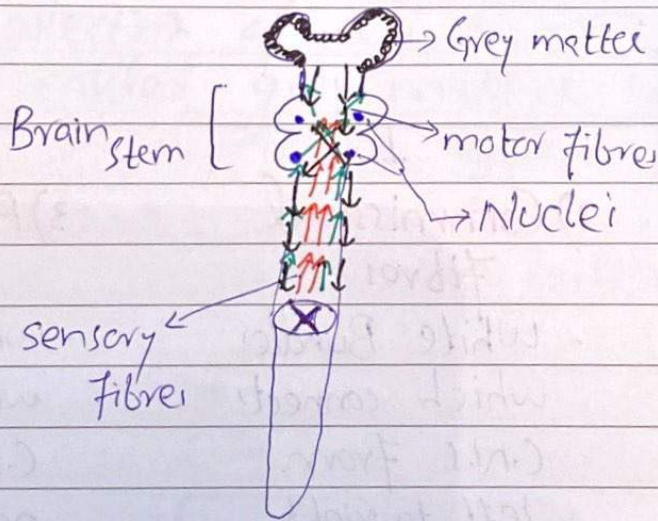 Grey matter
Brain
stem
motor fibres
Nuclei
sensory
fibres